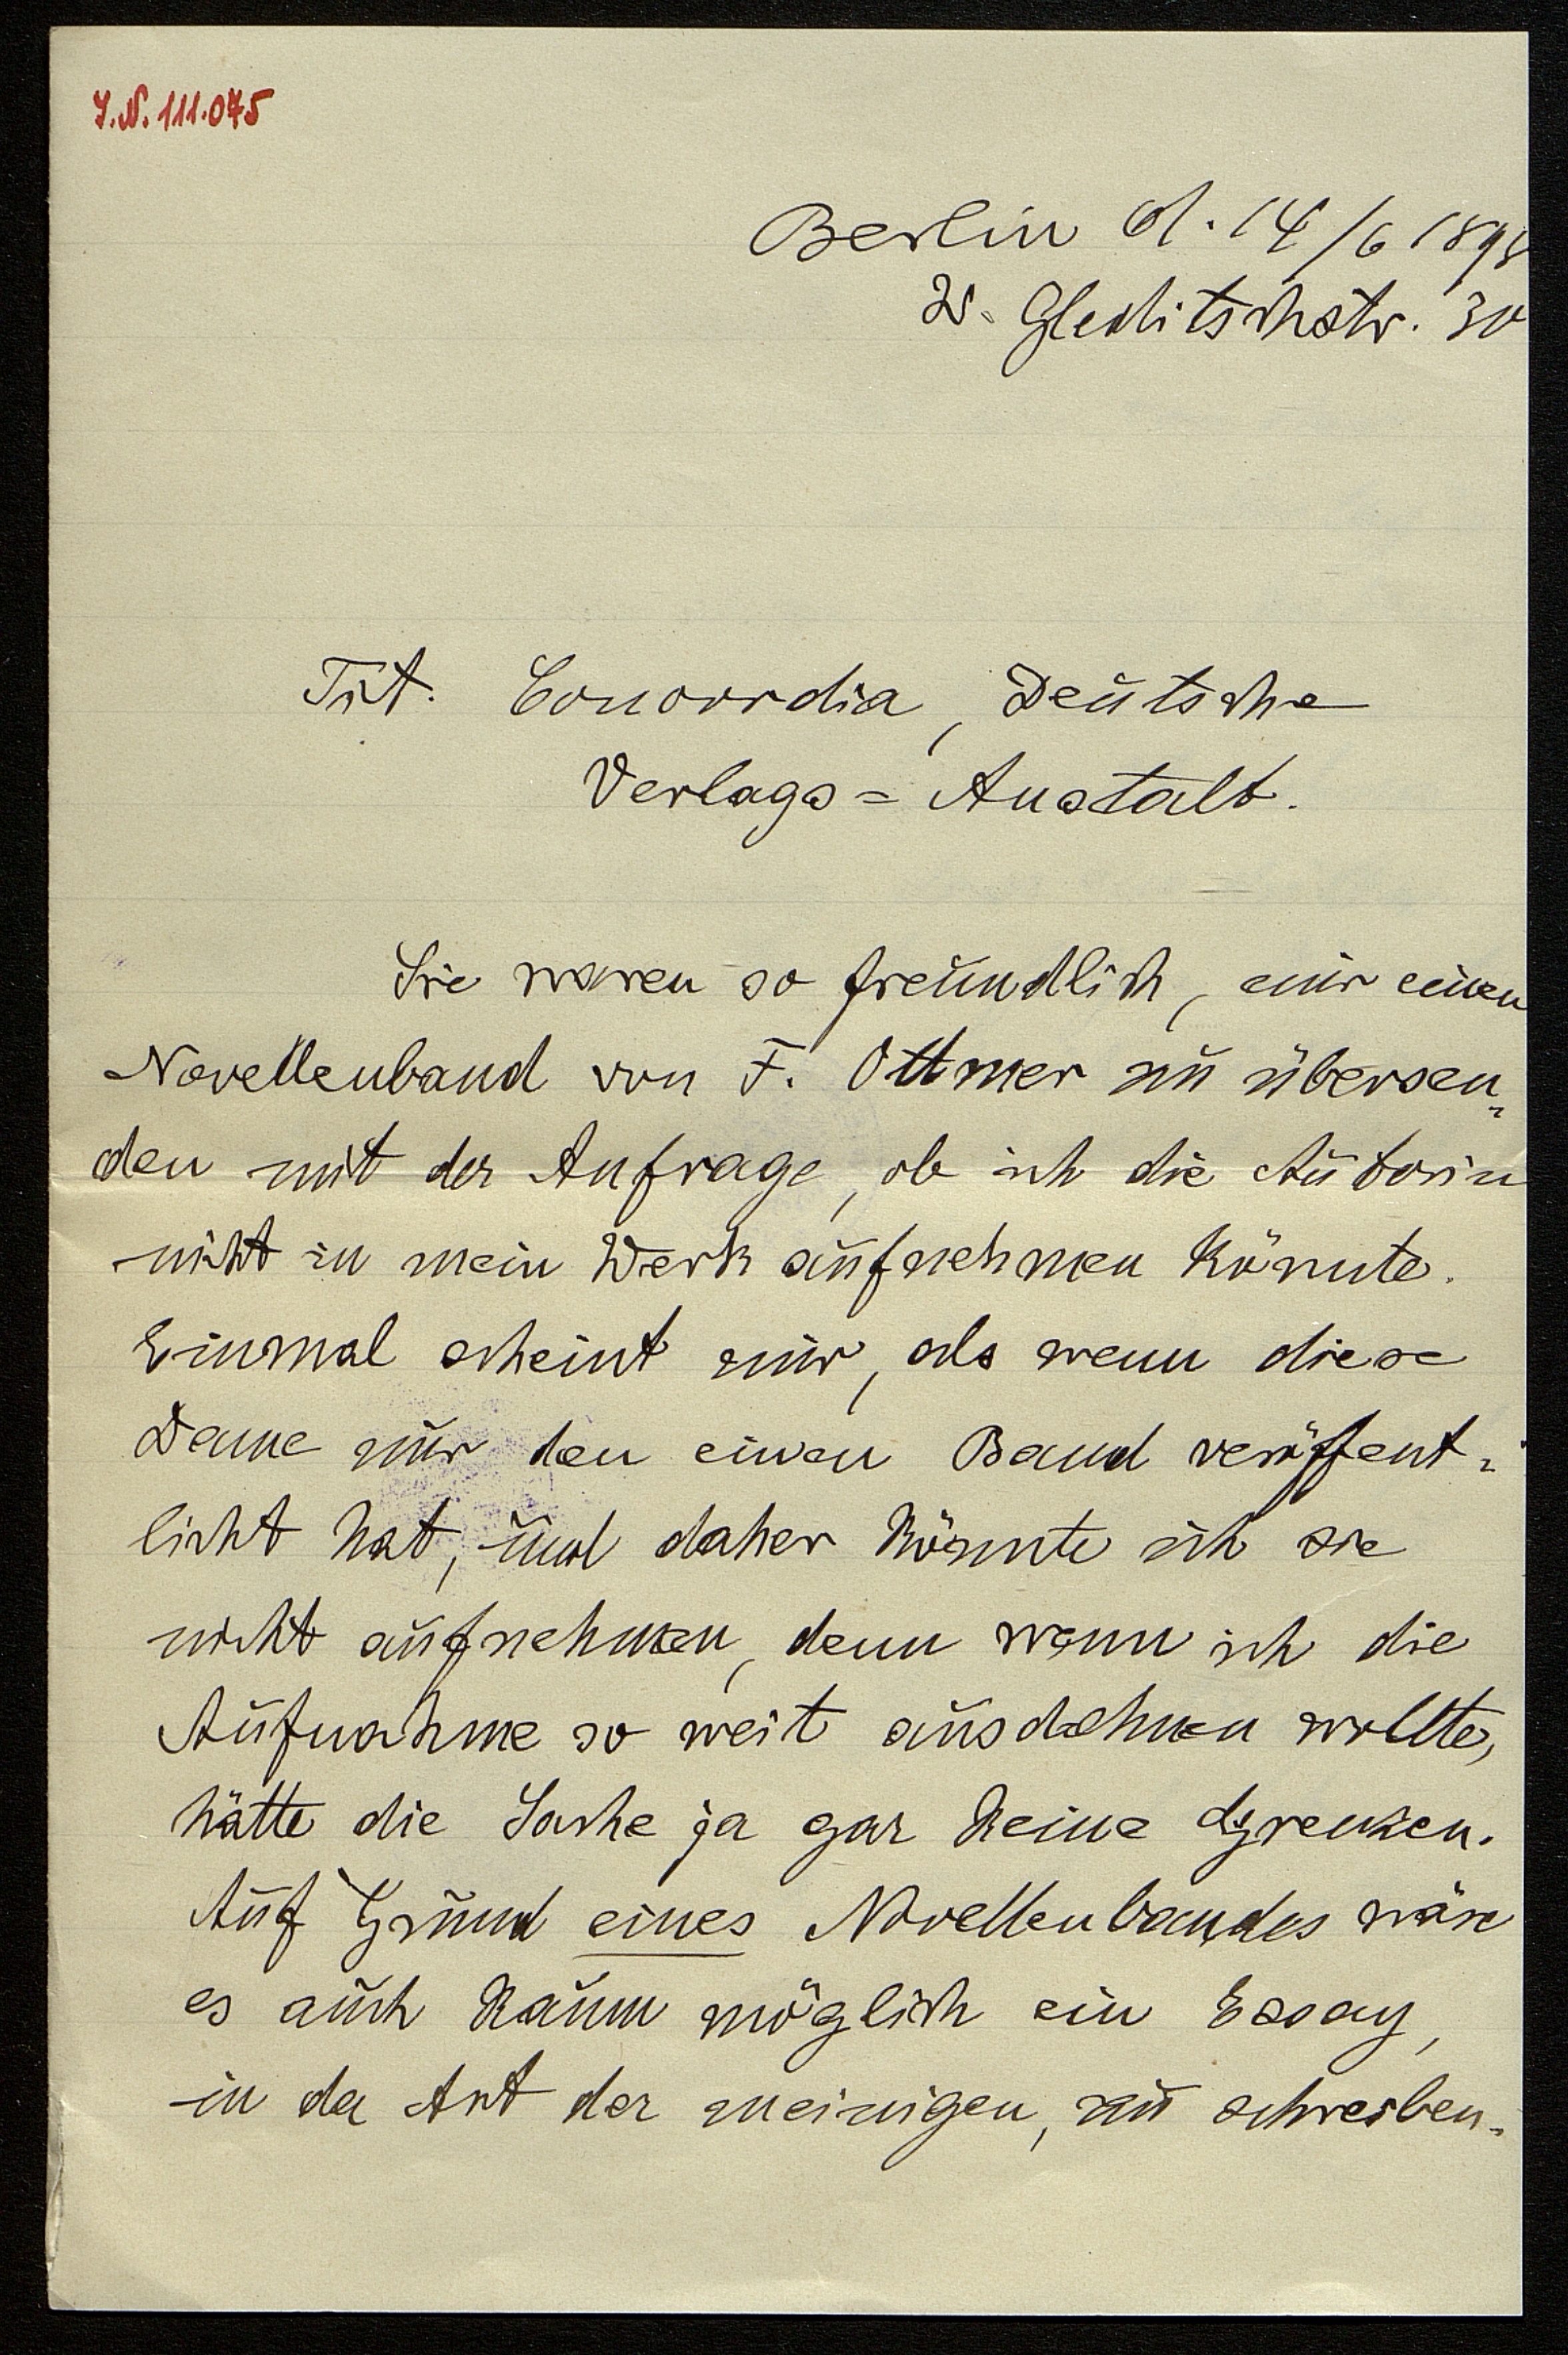 J.N. 111.075
Berlin d. 14/6 1898
W. Gleditschstr. 30
Tit. Concordia, Deutsche
Verlags=Anstalt.
Sie waren so freundlich, mir einen
Novellenband von F. Ottmer zu übersen=
den mit der Anfrage, ob ich die Autorin
nicht in mein Werk aufnehmen könnte.
Einmal scheint mir, als wenn diese
Dame nur den einen Band veröffent=
licht hat, und daher könnte ich sie
nicht aufnehmen, denn wenn ich die
Aufnahme so weit ausdehnen wollte,
hätte die Sache ja gar keine Grenzen.
Auf Grund eines Novellenbandes wäre
es auch kaum möglich ein Essay,
in der Art der meinigen, zu schreiben.